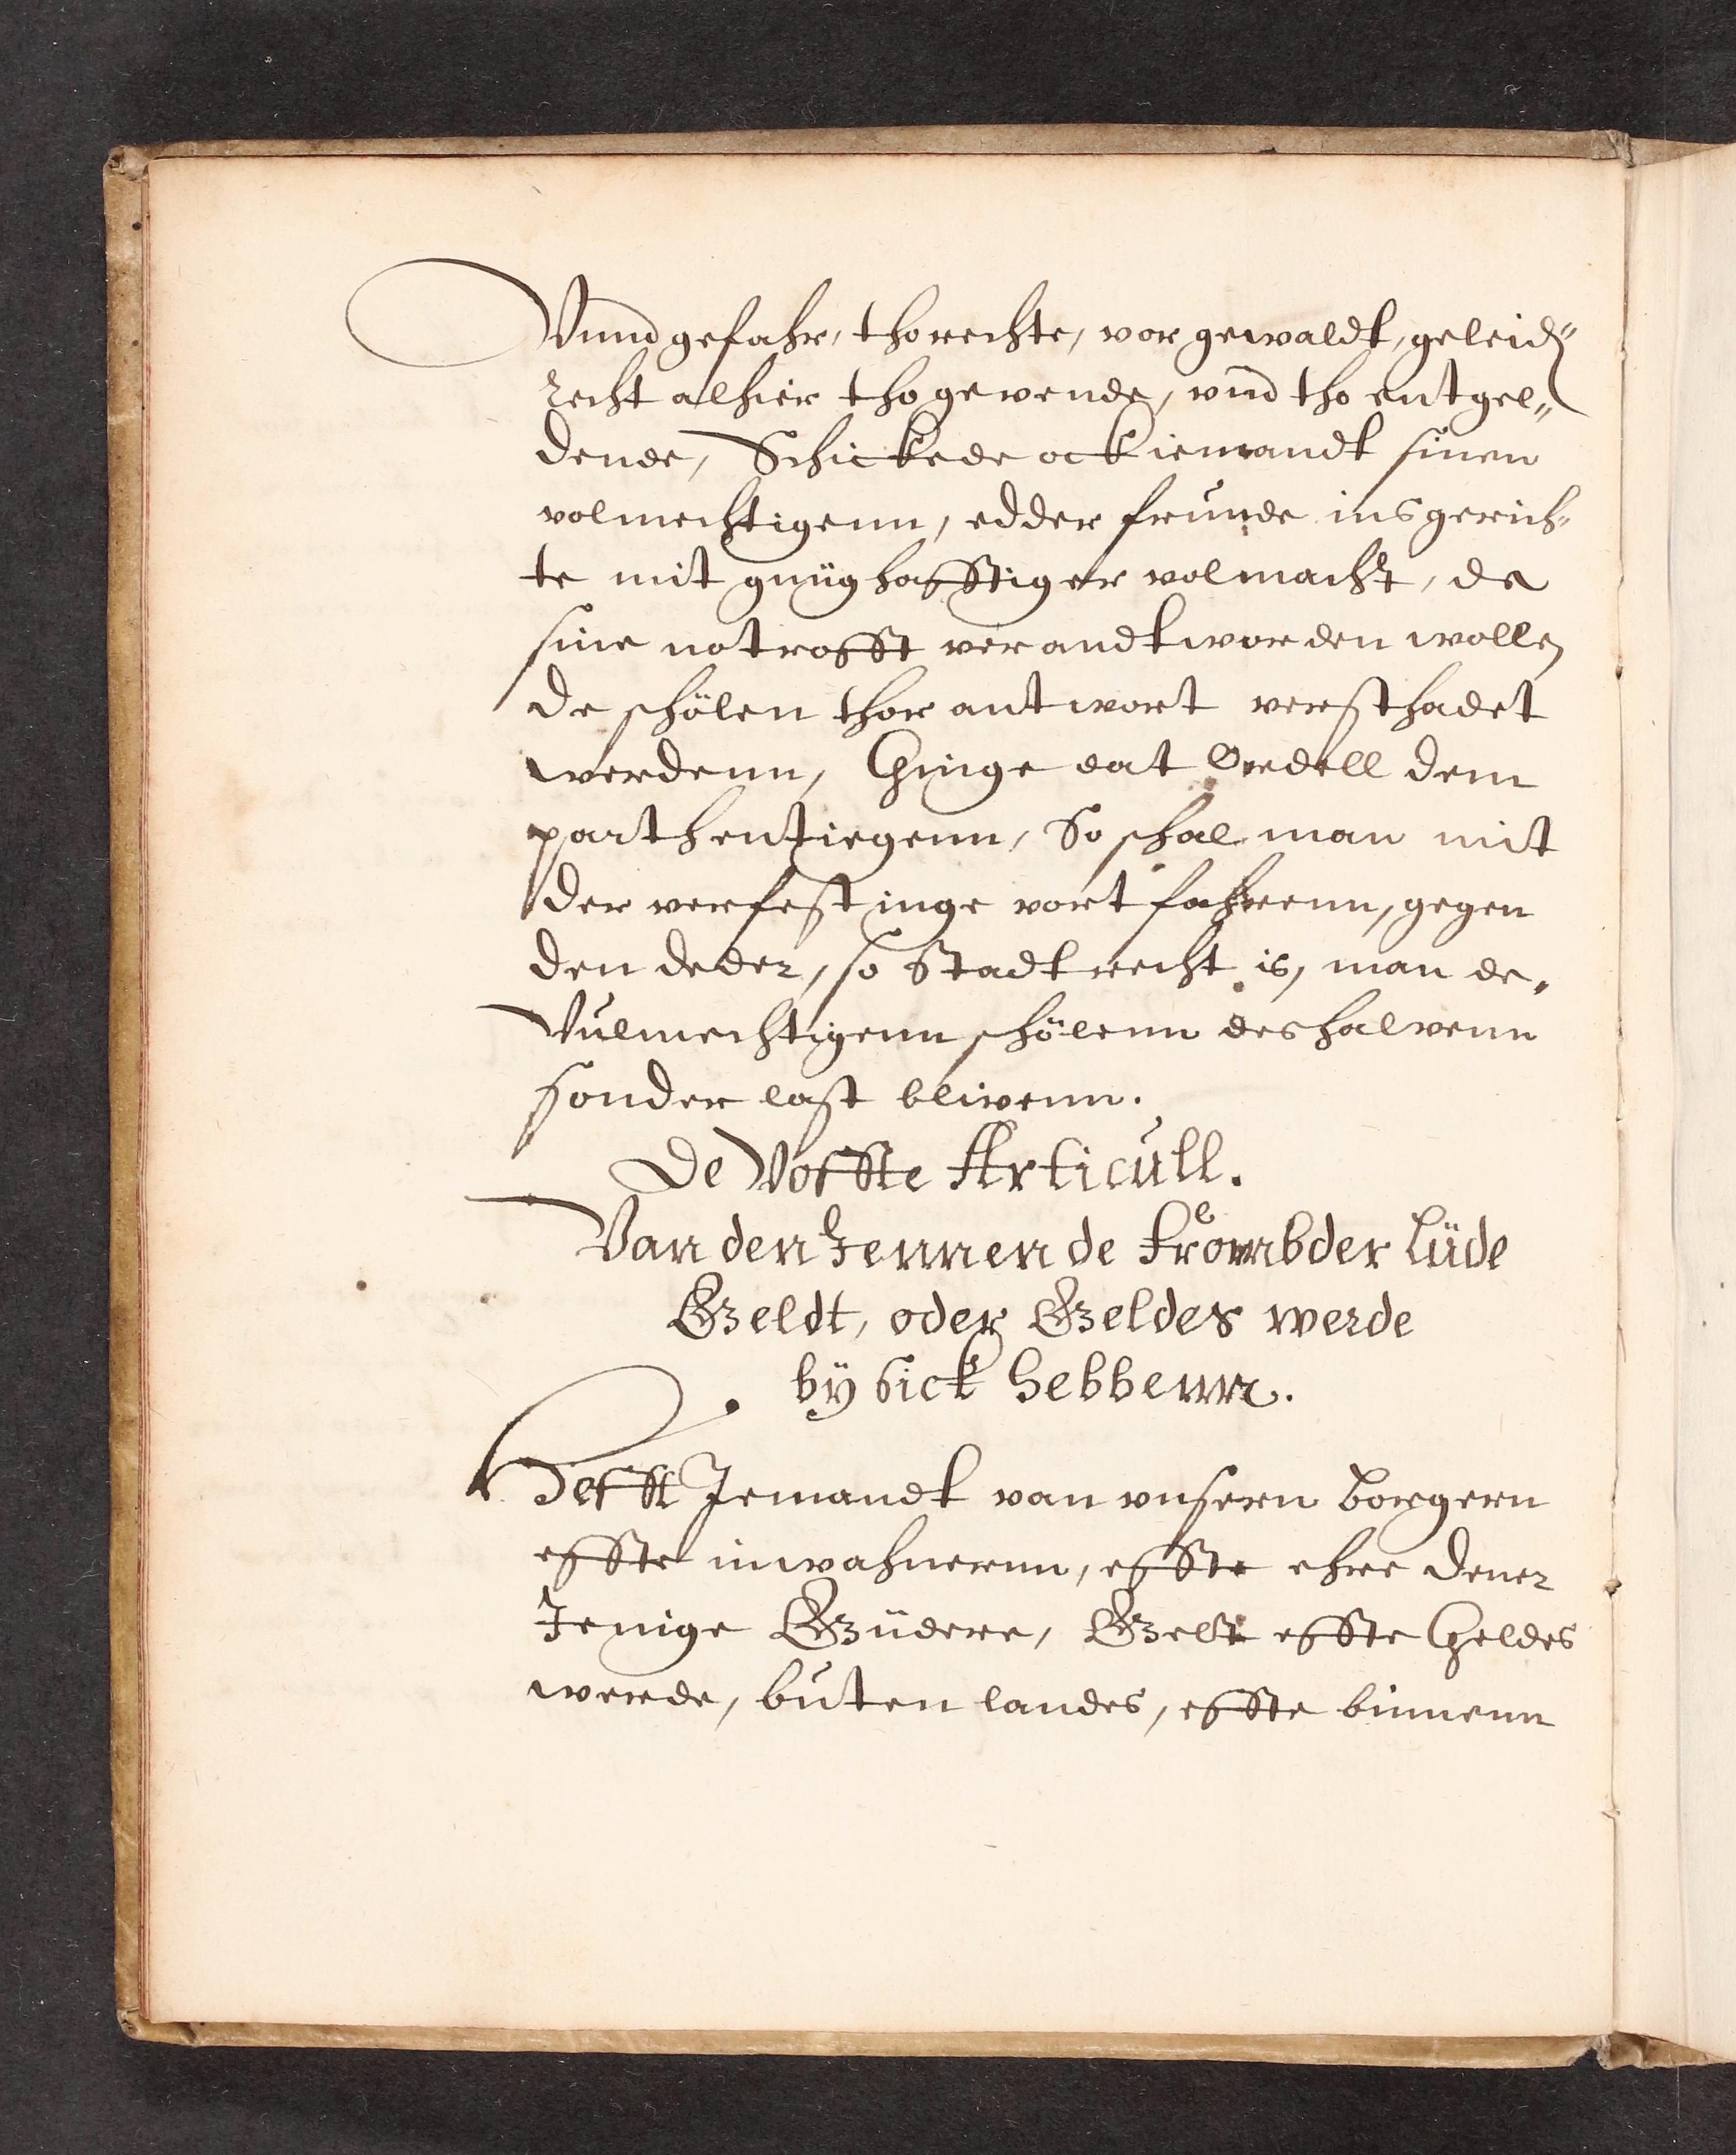 Vnnd gefahr, tho rechte, vor gewaldt, geleid„
recht alhier tho gevende, vnd tho entgel„
dende, Schickede ock iemandt sinen
volmechtigenn, edder frunde ins gerich„
te mit gnüghafftiger volmacht, de
sine notrofft verandtworden wolle,
de schölen thor antwort verstadet
werdenn, Ginge dat Ordell dem
parth entiegenn, So schal man mit
der verfestinge vort fahrenn, gegen
den deder, so Stadt recht is, man de„
Vulmechtigenn schölenn deshalvenn
sonder last blivenn.
De Voffte Articull.
Van den Jennen de Frömbder Lüde
Geldt, oder Geldes werde
bÿ sick hebbenn.
Hefft Jemandt van vnsern Borgern
effte inwahnernn, effte ehre dener
Jenige Güdere, Gelt effte Geldes
werde, buten landes, effte binnenn